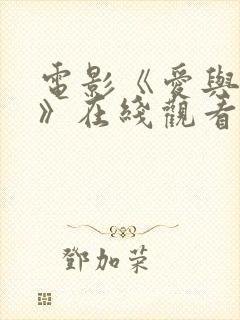 電影《愛與
》在綫觀看
鄧加榮